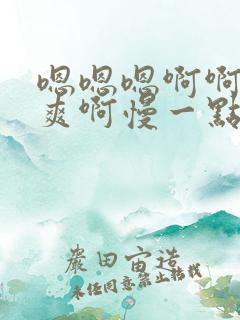 嗯嗯嗯啊啊
爽啊慢一點
農田宙港
未经同意禁止转载